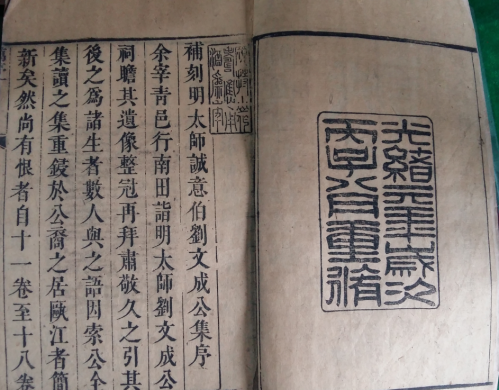 光緒元年歲次
丙子八月重脩
補刻明太師誠意伯劉文成公集序
余宰青邑行南田詣明太師劉文成公
祠瞻其遺像整冠再拜肅敬久之引其
後之爲諸生者數人與之語因索公全
集讀之集重鋟於公裔之居甌江者簡
新矣然尚有恨者自十一卷至十八卷